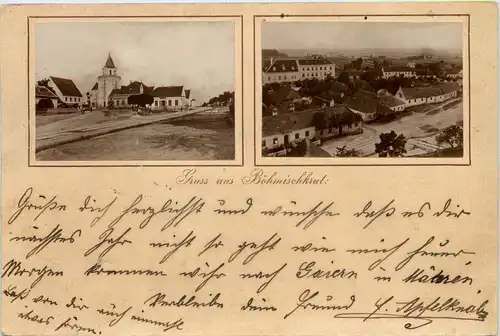 Gruss aus Böhmischkrut:
Grüße dich herzlichst und wünsche daß es dir
nächstes Jahr nicht so geht wie mich heuer
Morgen kommen wihr nach Gaiern in Mähren
Laß von dir auch einmahl Verbleibe dein Freund
etwas hören.